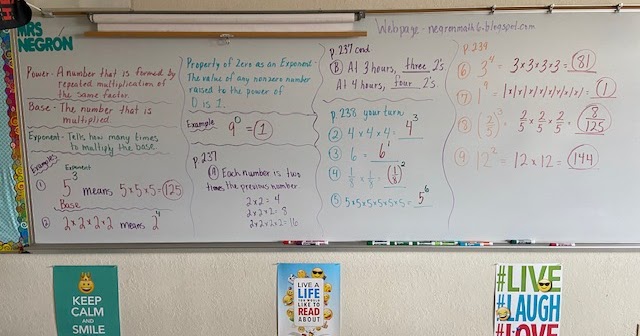 MRS
NEGRON
Webpage - negronmath6.blogspot.com
Power - A number that is formed by
repeated multiplication of
the same factor.
Base - The number that is
multiplied.
Exponent - Tells how many times
to multiply the base.
Examples
Exponent
① 5³ means 5×5×5=125
Base
② 2×2×2×2 means 2⁴
Property of Zero as an Exponent -
The value of any nonzero number
raised to the power of
0 is 1.
Example 9⁰ = 1
p. 237
Ⓐ Each number is two
times the previous number
2×2 = 4
2×2×2 = 8
2×2×2×2 = 16
p. 237 cnd
Ⓑ At 3 hours, three 2's
At 4 hours, four 2's.
p. 238 your turn
② 4×4×4 = 4³
③ 6 = 6¹
④ 1/8 × 1/8 = (1/8)²
⑤ 5×5×5×5×5×5 = 5⁶
p. 239
⑥ 3⁴ = 3×3×3×3 = 81
1×1×1×1×1×1×1×1×1 = 1
⑧ (2/5)³ = 2/5 × 2/5 × 2/5 = 8/125
⑨ 12² = 12 × 12 = 144
KEEP
CALM
AND
SMILE
LIVE A
LIFE
YOU WOULD
LIKE TO
READ
ABOUT
#LIVE
#LAUGH
#LOVE